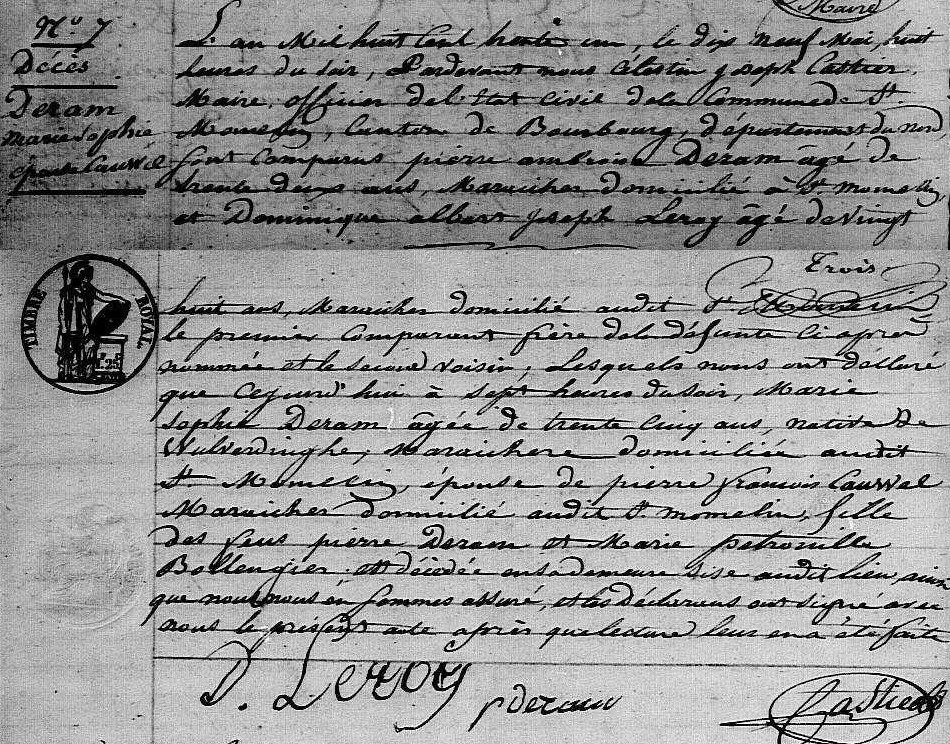 Maire
N.º 7
Décès
Deram
Marie Sophie
épouse Cauwel
L'an Mil huit cent trente un, le dix neuf Mai, huit
heures du soir, Pardevant nous Célestin Joseph Cattier
Maire, officier de l'Etat Civil de la Commune de St.
Momelin, Canton de Bourbourg, département du Nord
sont comparus pierre ambroise Deram âgé de
trente deux ans, Maraicher domicilié à St momelin,
et Dominique albert Joseph Leroy âgé de vingt
Trois
TIMBRE ROYAL
25
huit ans, Maraicher domicilié audit St Momelin
le premier Comparant frère de la défunte ci après
nommée et le second voisin, Lesquels nous ont déclaré
que Cejourd'hui à sept heures du soir, Marie
Sophie Deram âgée de trente cinq ans, native de
Wulverdinghe, Maraichere domiciliée audit
St Momelin, épouse de pierre françois Cauwel
Maraicher domicilié audit St momelin, fille
des feus pierre Deram et Marie petronille
Bollengier est décédée en sa demeure sise audit lieu, ainsi
que nous nous en sommes assuré, et les Déclarans ont signé avec
nous le présent acte après que lecture leur en a été faite
D. Leroy
p deram